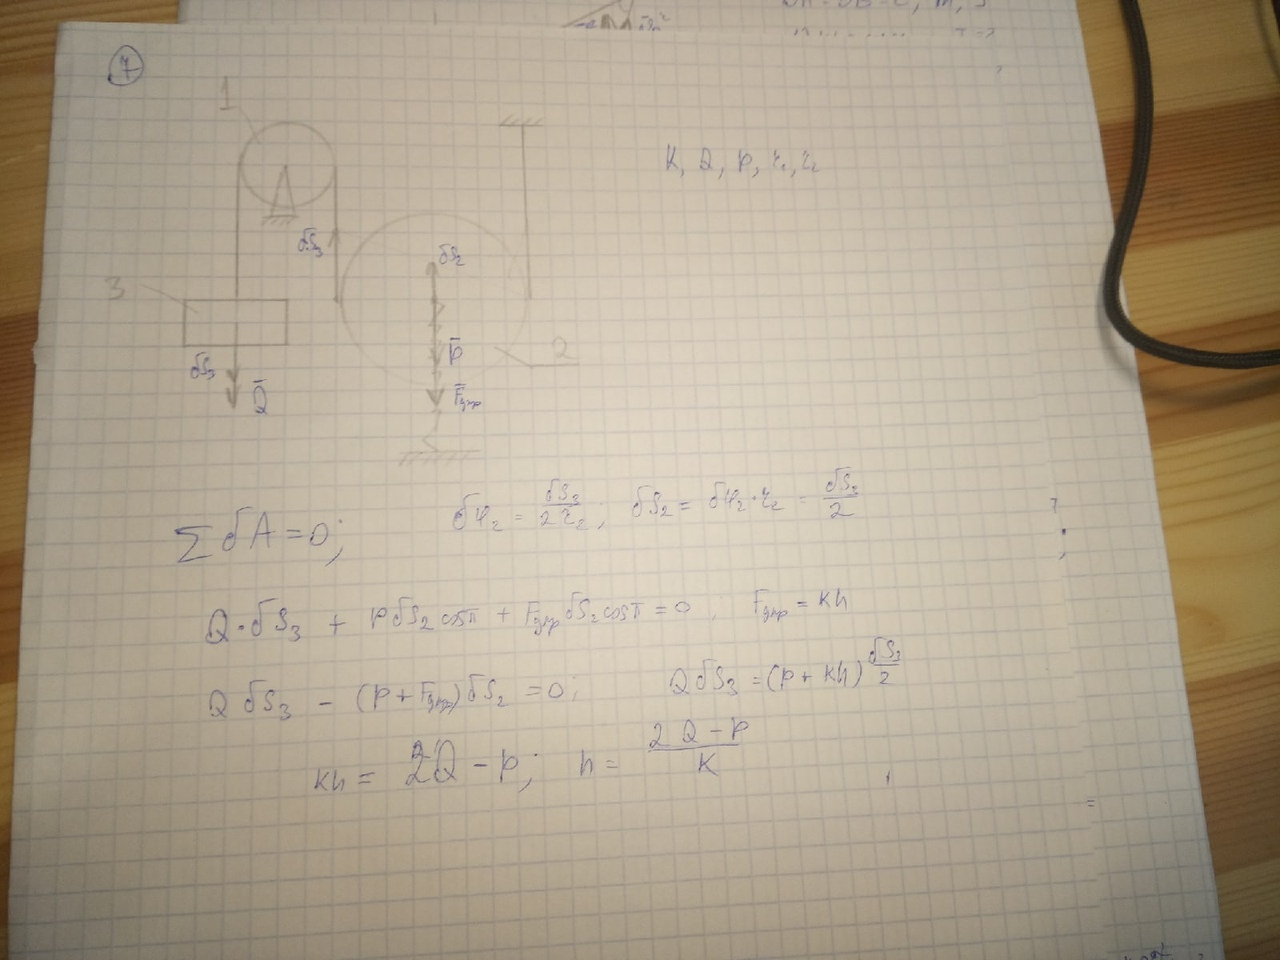 7
1
K, Q, P, r₁, r₂
δS₃
δS₂
3
P̄
2
δS₃
Q̄
F̄упр
∑ δA = 0; δφ₂ = δS₃/2r₂; δS₂ = δφ₂·r₂ = δS₃/2
Q·δS₃ + PδS₂cosπ + FупрδS₂cosπ = 0, Fупр = Kh
QδS₃ − (P+Fупр)δS₂ = 0; QδS₃ = (P + Kh) δS₃/2
Kh = 2Q − P; h = (2Q − P)/K